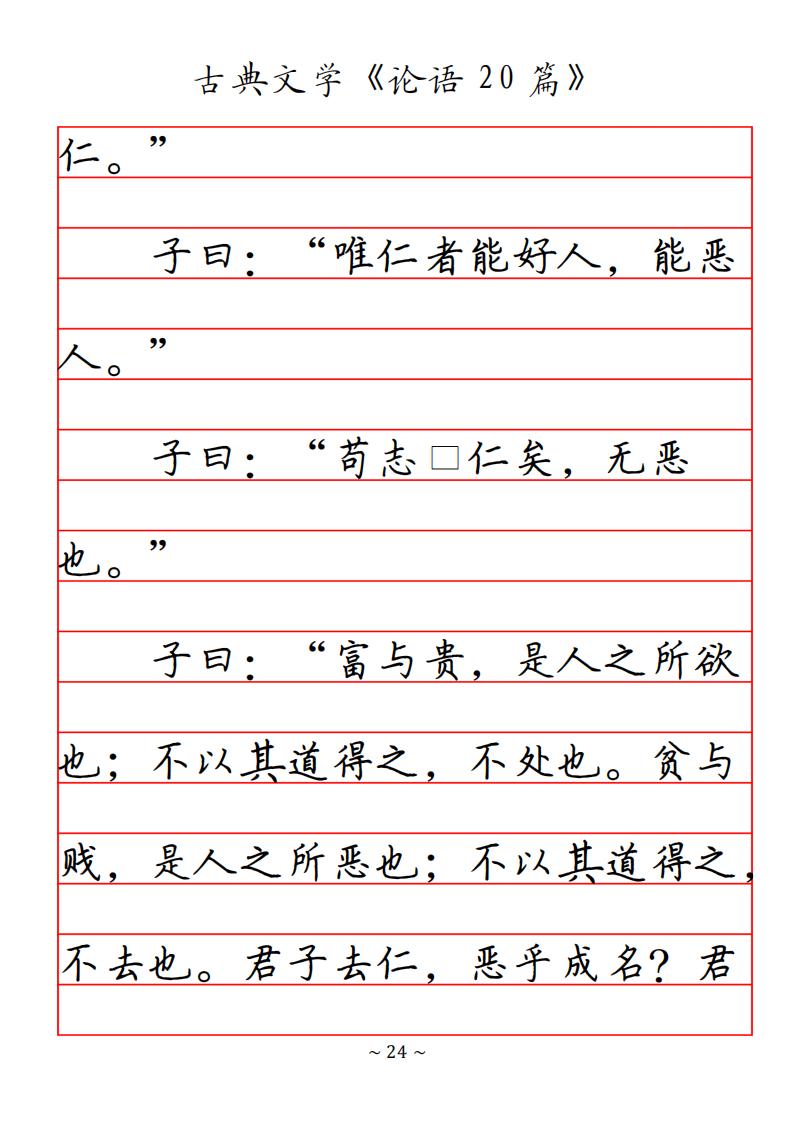 古典文学《论语 20 篇》
仁。”
子曰：“唯仁者能好人，能恶
人。”
子曰：“苟志□仁矣，无恶
也。”
子曰：“富与贵，是人之所欲
也；不以其道得之，不处也。贫与
贱，是人之所恶也；不以其道得之，
不去也。君子去仁，恶乎成名？君
~ 24 ~